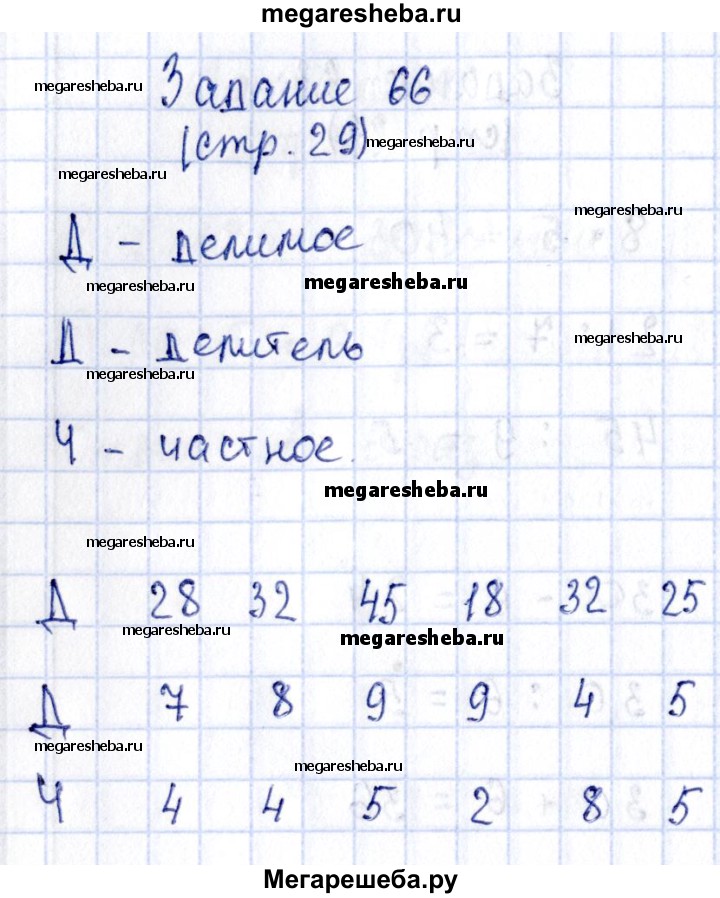 megaresheba.ru
Задание 66
megaresheba.ru
(стр. 29)
megaresheba.ru
megaresheba.ru
megaresheba.ru
Д - делимое
megaresheba.ru
megaresheba.ru
Д - делитель
megaresheba.ru
megaresheba.ru
Ч - частное.
megaresheba.ru
megaresheba.ru
Д 28 32 45 18 32 25
megaresheba.ru
megaresheba.ru
Д 7 8 9 9 4 5
megaresheba.ru
megaresheba.ru
Ч 4 4 5 2 8 5
Мегарешеба.ру